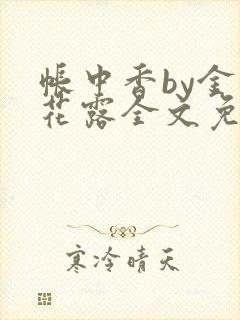 帐中香by金
花露全文免
寒冷晴天